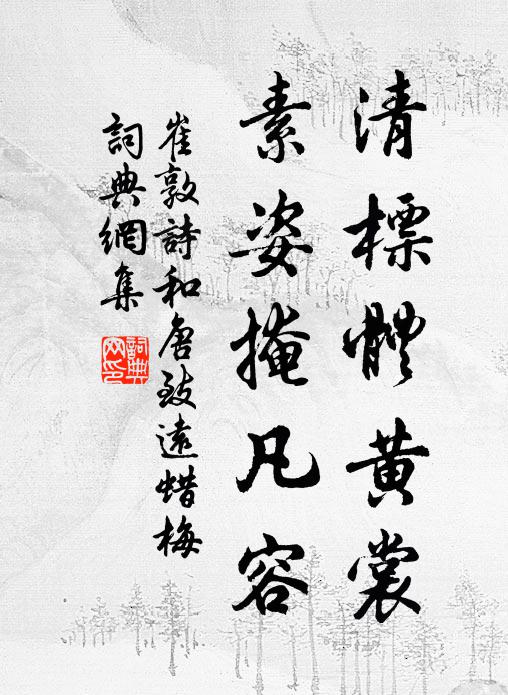 清標體黃裳
素姿掩凡容
崔敦詩和唐致遠蜡梅
詞典網集
詞典網印